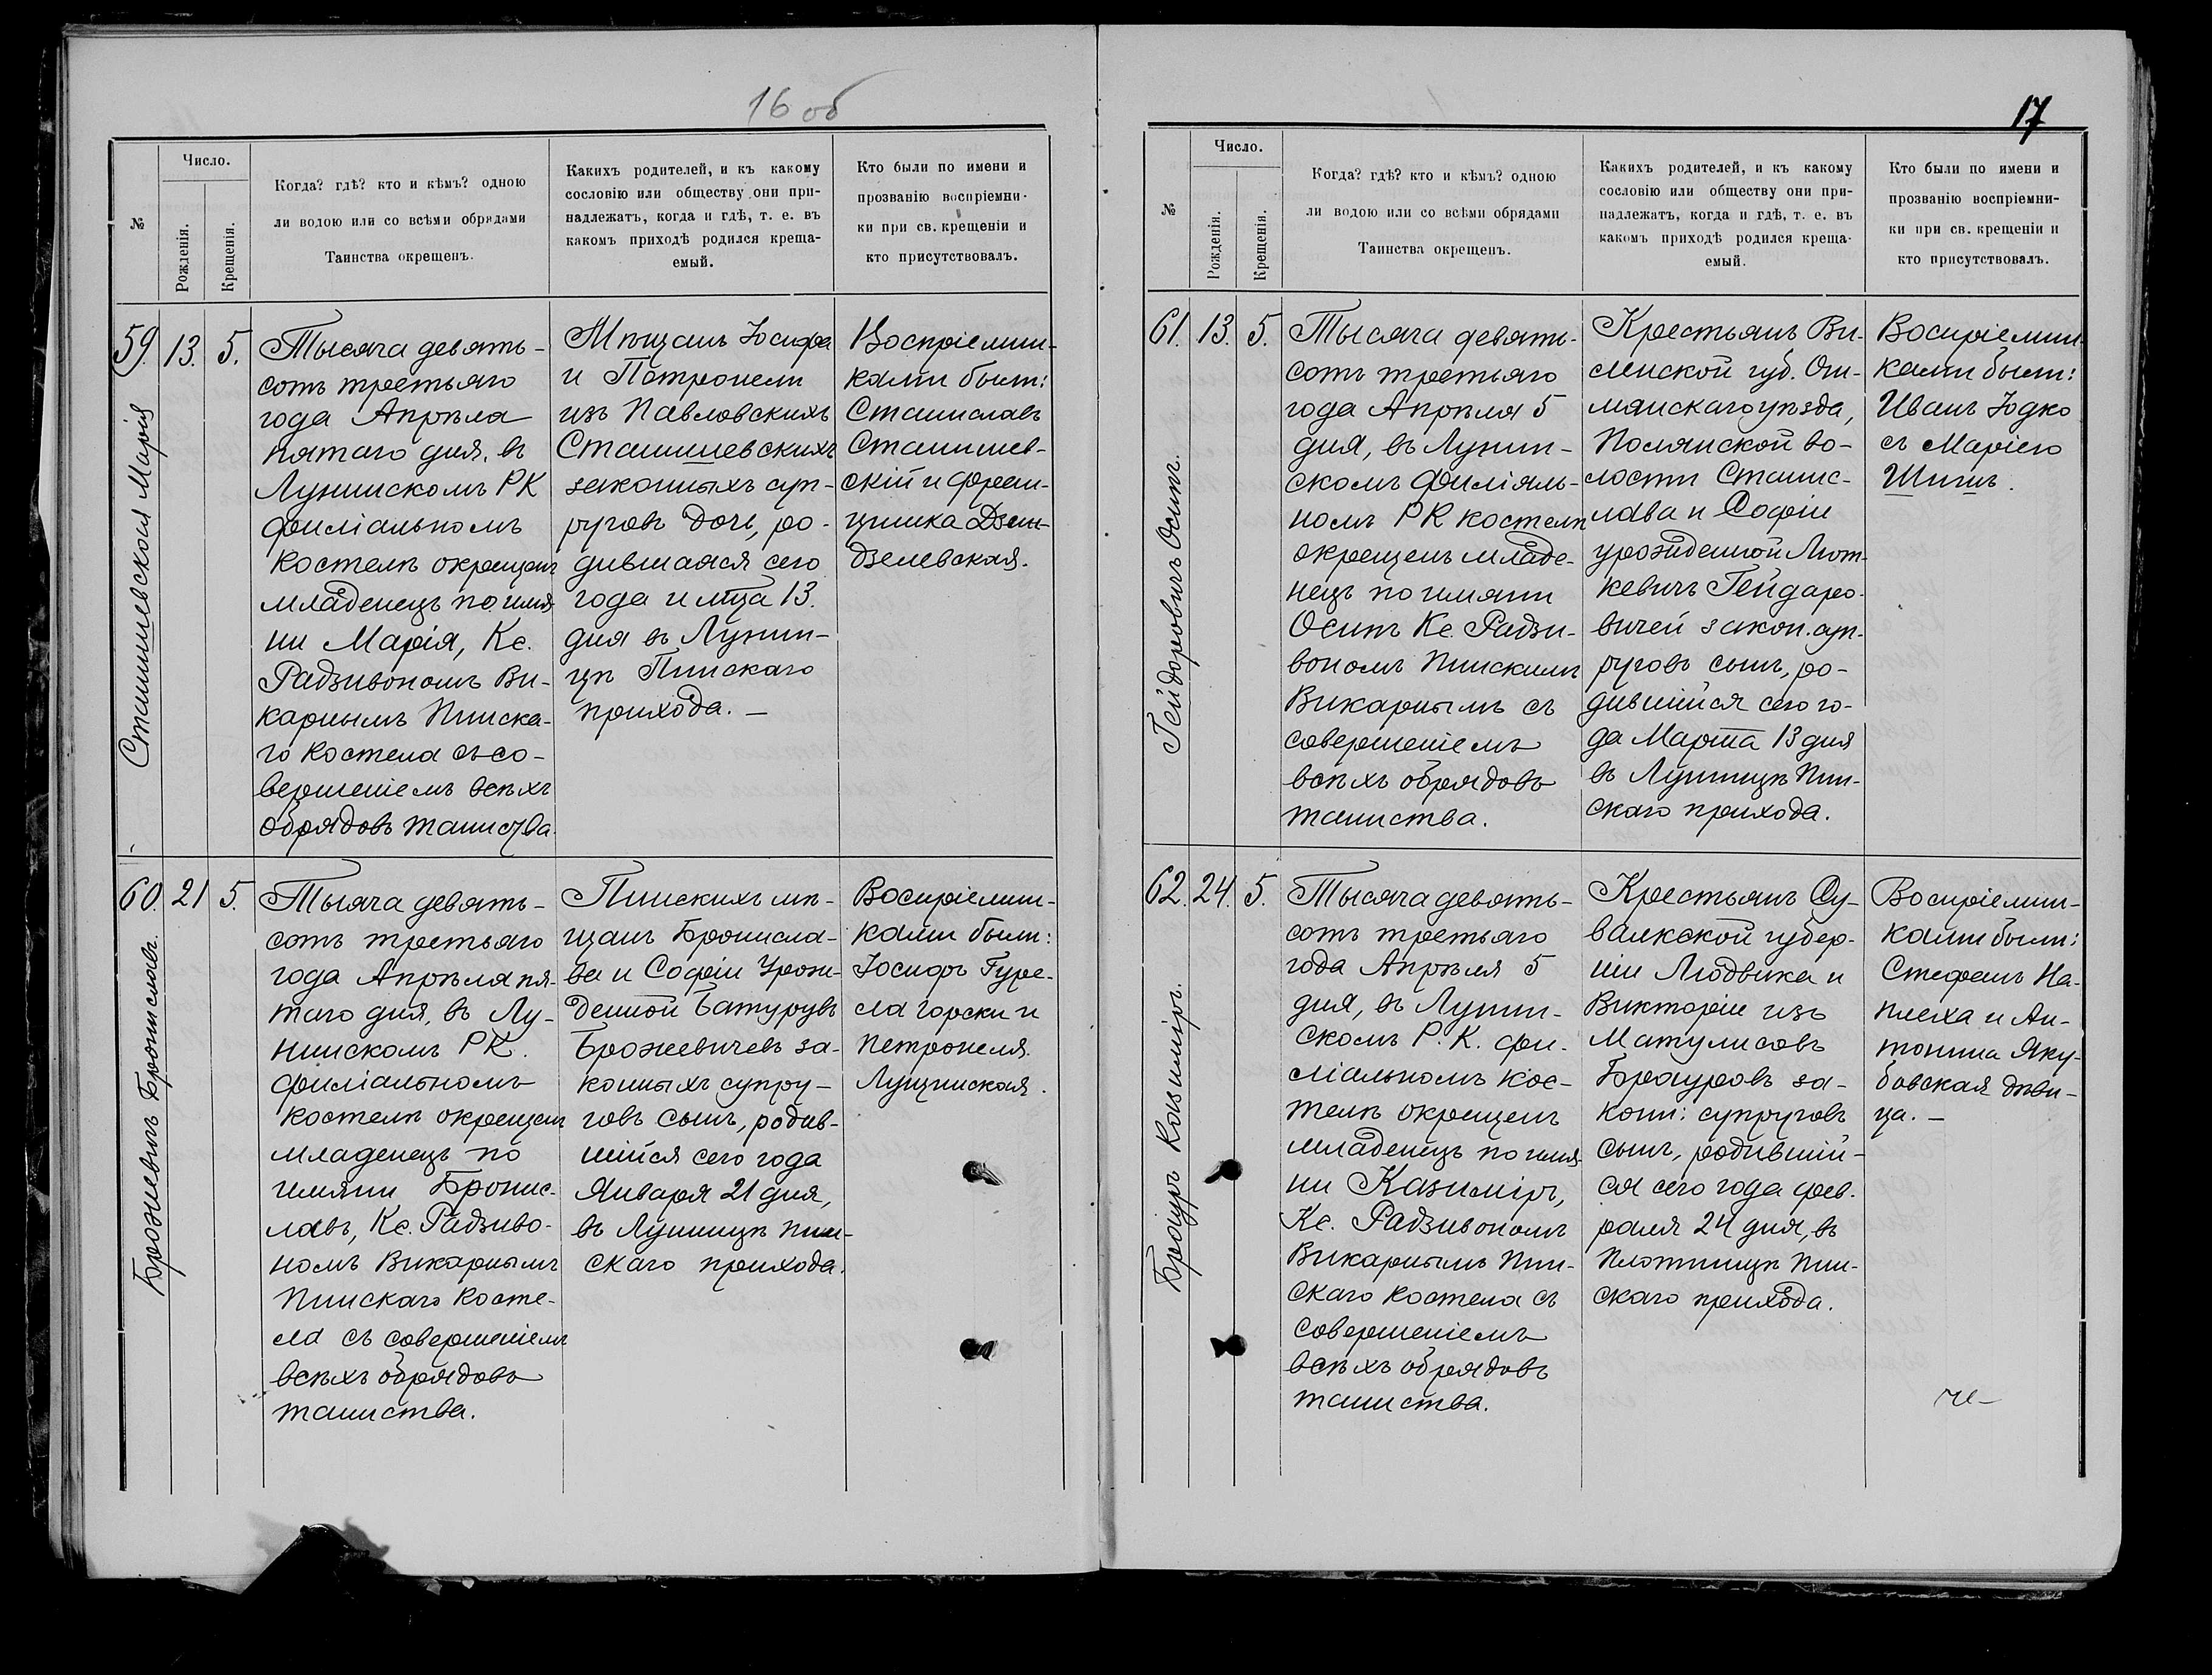 16 об
№
Число.
Рожденія.
Крещенія.
Когда? гдѣ? кто и кѣмъ? одною
ли водою или со всѣми обрядами
Таинства окрещенъ.
Какихъ родителей, и къ какому
сословію или обществу они при-
надлежатъ, когда и гдѣ, т. е. въ
какомъ приходѣ родился креща-
емый.
Кто были по имени и
прозванію воспріемни-
ки при св. крещеніи и
кто присутствовалъ.
59. 13. 5.
Станишевская Марія
Тысяча девять-
сотъ третьяго
года Апрѣла
пятаго дня, въ
Лунинскомъ РК
филіальномъ
костелѣ окрещенъ
младенецъ по имя
ни Марія, Кс.
Радзивономъ Ви-
карнымъ Пинска-
го костела съ со-
вершеніемъ всѣхъ
обрядовъ таинства.
Мѣщанъ Іосифа
и Петронели
изъ Павловскихъ
Станишевскихъ
законныхъ суп-
руговъ дочь, ро-
дившаяся сего
года и мца 13.
дня въ Лунин-
цѣ Пинскаго
прихода. —
Воспріемни-
ками были:
Станиславъ
Станишев-
скій и Фран-
цишка Дзен-
дзелевская.
60. 21 5.
Брожевичъ Брониславъ.
Тысяча девять-
сотъ третьяго
года Апрѣля пя-
таго дня, въ Лу-
нинскомъ РК.
филіальномъ
костелѣ окрещенъ
младенецъ по
имяни Бронис-
лавъ, Кс. Радзиво-
номъ Викарнымъ
Пинскаго косте-
ла съ совершеніемъ
всѣхъ обрядовъ
таинства.
Пинскихъ мѣ-
щанъ Бронисла-
ва и Софіи Урож-
денной Батурувъ
Брожевичевъ за-
конныхъ супру-
говъ сынъ, родив-
шійся сего года
Января 21 дня,
въ Лунинцѣ Пин-
скаго прихода.
Воспріемни-
ками были:
Іосифъ Гуре-
ла горски и
Петронеля
Лущинская.
17
№
Число.
Рожденія.
Крещенія.
Когда? гдѣ? кто и кѣмъ? одною
ли водою или со всѣми обрядами
Таинства окрещенъ.
Какихъ родителей, и къ какому
сословію или обществу они при-
надлежатъ, когда и гдѣ, т. е. въ
какомъ приходѣ родился креща-
емый.
Кто были по имени и
прозванію воспріемни-
ки при св. крещеніи и
кто присутствовалъ.
61. 13. 5.
Гейдоровичъ Осипъ.
Тысяча девять-
сотъ третьяго
года Апрѣля 5
дня, въ Лунин-
скомъ Филіяль-
номъ РК костелѣ
окрещенъ младе-
нецъ по имяни
Осипъ Кс. Радзи-
вономъ Пинскимъ
Викарнымъ съ
совершеніемъ
всѣхъ обрядовъ
таинства.
Крестьянъ Ви-
ленской губ. Ош-
мянскаго уѣзда,
Полянской во-
лости Станис-
лава и Софіи
урожденной Лют-
кевичъ Гейдаро-
вичей закон. суп-
руговъ сынъ, ро-
дившійся сего го-
да Марта 13 дня
въ Лунинцѣ Пин-
скаго прихода.
Воспріемни-
ками были:
Иванъ Юдко
съ Маріею
Шишъ.
62. 24. 5.
Брауръ Казиміръ.
Тысяча девять-
сотъ третьяго
года Апрѣля 5
дня, въ Лунин-
скомъ Р. К. фи-
ліальномъ кос-
телѣ окрещенъ
младенецъ по имя-
ни Казиміръ,
Кс. Радзивономъ
Викарнымъ Пин-
скаго костела съ
совершеніемъ
всѣхъ обрядовъ
таинства.
Крестьянъ Су-
валкской губер-
ніи Людвика и
Викторіи изъ
Матулисовъ
Брауровъ за-
конн: супруговъ
сынъ, родившій-
ся сего года фев-
раля 24 дня, въ
Плотницѣ Пин-
скаго прихода.
Воспріемни-
ками были:
Стефанъ На-
плеха и Ан-
тонина Яку-
бовская дѣви-
ца. —